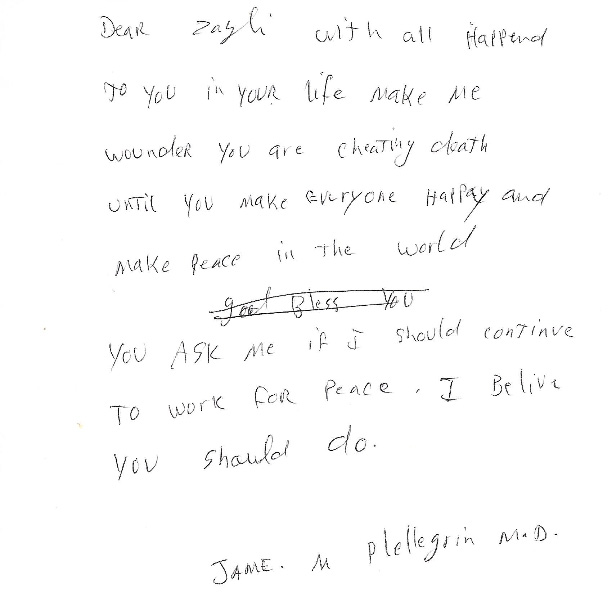 Dear Zayli with all Happend
To you in your life make me
wounder you are cheating death
until you make everyone Happay and
make peace in the world
god Bless You
You Ask me if I should continue
To work for Peace. I Belive
you should do.
JAME. M Plellegrin M.D.